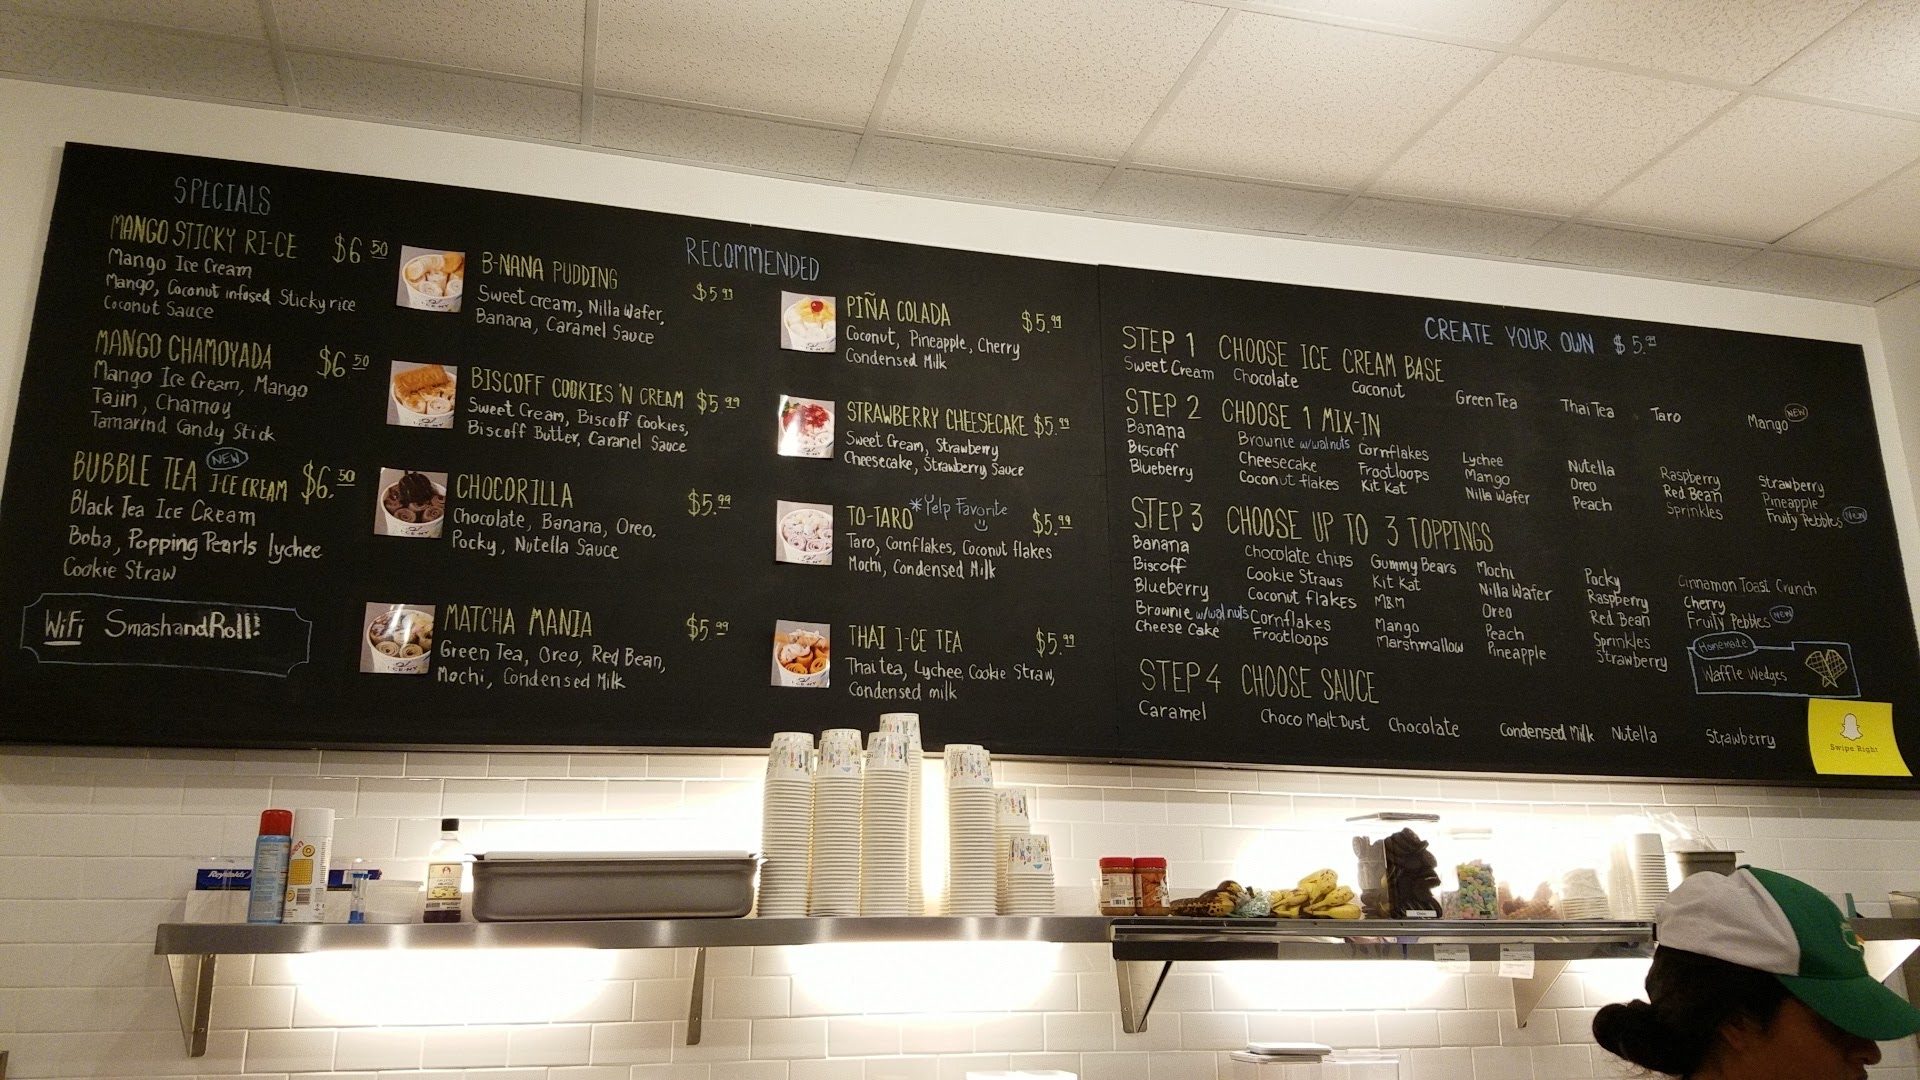 SPECIALS
MANGO STICKY RI-CE $6 50
Mango Ice Cream
Mango, Coconut infused Sticky rice
Coconut Sauce
MANGO CHAMOYADA $6 50
Mango Ice Cream, Mango
Tajin, Chamoy
Tamarind Candy Stick
BUBBLE TEA ICE CREAM NEW $6.50
Black Tea Ice Cream
Boba, Popping Pearls lychee
Cookie Straw
WiFi SmashandRoll!
RECOMMENDED
B-NANA PUDDING $5 99
Sweet cream, Nilla Wafer,
Banana, Caramel Sauce
BISCOFF COOKIES 'N CREAM $5 99
Sweet Cream, Biscoff Cookies,
Biscoff Butter, Caramel Sauce
CHOCORILLA $5.99
Chocolate, Banana, Oreo,
Pocky, Nutella Sauce
MATCHA MANIA $5 99
Green Tea, Oreo, Red Bean,
Mochi, Condensed Milk
PIÑA COLADA $5.99
Coconut, Pineapple, Cherry
Condensed Milk
STRAWBERRY CHEESECAKE $5.99
Sweet Cream, Strawberry
Cheesecake, Strawberry Sauce
TO-TARO *Yelp Favorite $5.99
Taro, Cornflakes, Coconut flakes
Mochi, Condensed Milk
THAI I-CE TEA $5.99
Thai tea, Lychee, Cookie Straw,
Condensed milk
CREATE YOUR OWN $5.99
STEP 1 CHOOSE ICE CREAM BASE
Sweet Cream Chocolate Coconut Green Tea Thai Tea Taro Mango NEW
STEP 2 CHOOSE 1 MIX-IN
Banana Brownie w/walnuts Cornflakes Lychee Nutella Raspberry Strawberry
Biscoff Cheesecake Frootloops Mango Oreo Red Bean Pineapple
Blueberry Coconut flakes Kit Kat Nilla Wafer Peach Sprinkles Fruity Pebbles NEW
STEP 3 CHOOSE UP TO 3 TOPPINGS
Banana Chocolate chips Gummy Bears Mochi Pocky Cinnamon Toast Crunch
Biscoff Cookie Straws Kit Kat Nilla Wafer Raspberry Cherry
Blueberry Coconut flakes M&M Oreo Red Bean Fruity Pebbles NEW
Brownie w/walnuts Cornflakes Mango Peach Sprinkles
Cheese Cake Frootloops Marshmallow Pineapple Strawberry
Homemade
Waffle Wedges
STEP 4 CHOOSE SAUCE
Caramel Choco Malt Dust Chocolate Condensed Milk Nutella Strawberry
Swipe Right
Reynolds